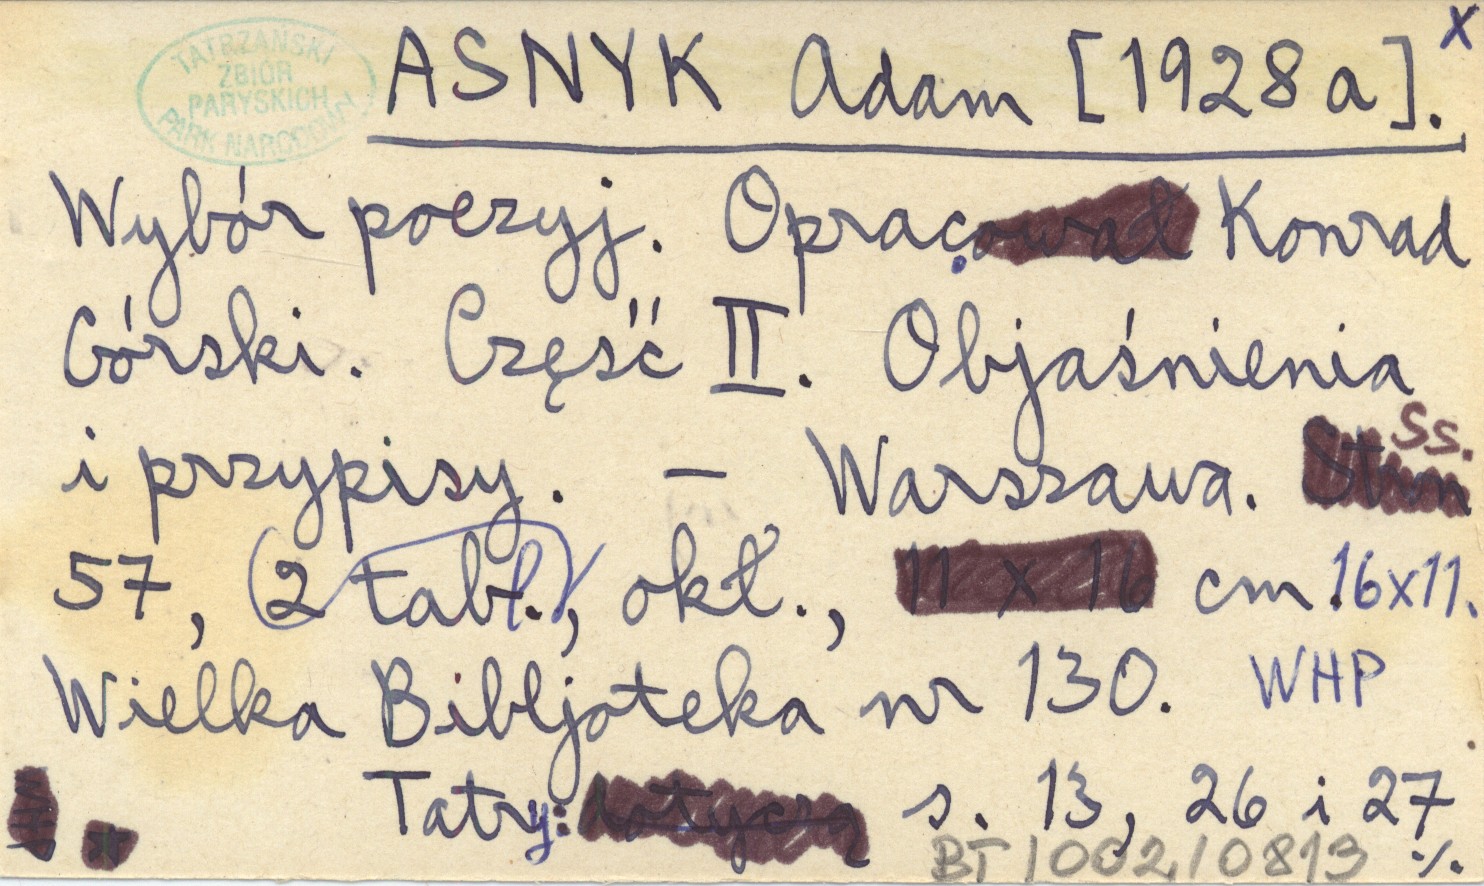 TATRZAŃSKI
ZBIÓR
PARYSKICH
PARK NARODOWY
ASNYK Adam [1928a]. x
Wybór poezyj. Opracował Konrad
Górski. Część II. Objaśnienia
i przypisy. — Warszawa. Ss.
57, (2 tabl.), okł., 11 x 16 cm. 16x11.
Wielka Bibljoteka nr 130. WHP
Tatry: dotyczą s. 13, 26 i 27
BT/002/0813 ./.